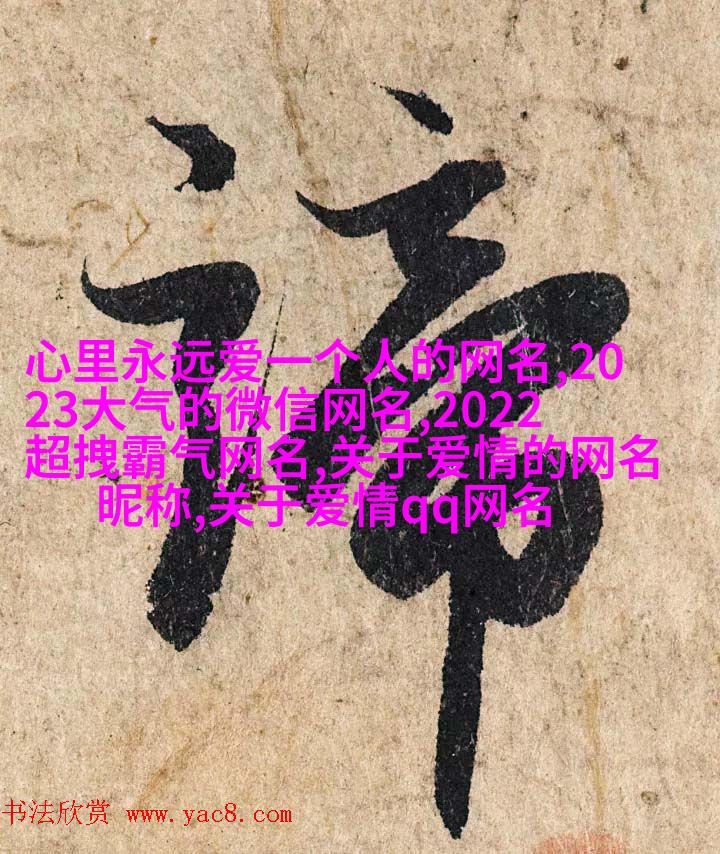 諦
心里永远爱一个人的网名,20
23大气的微信网名,2022
超拽霸气网名,关于爱情的网名
昵称,关于爱情qq网名
书法欣赏 www.yac8.com